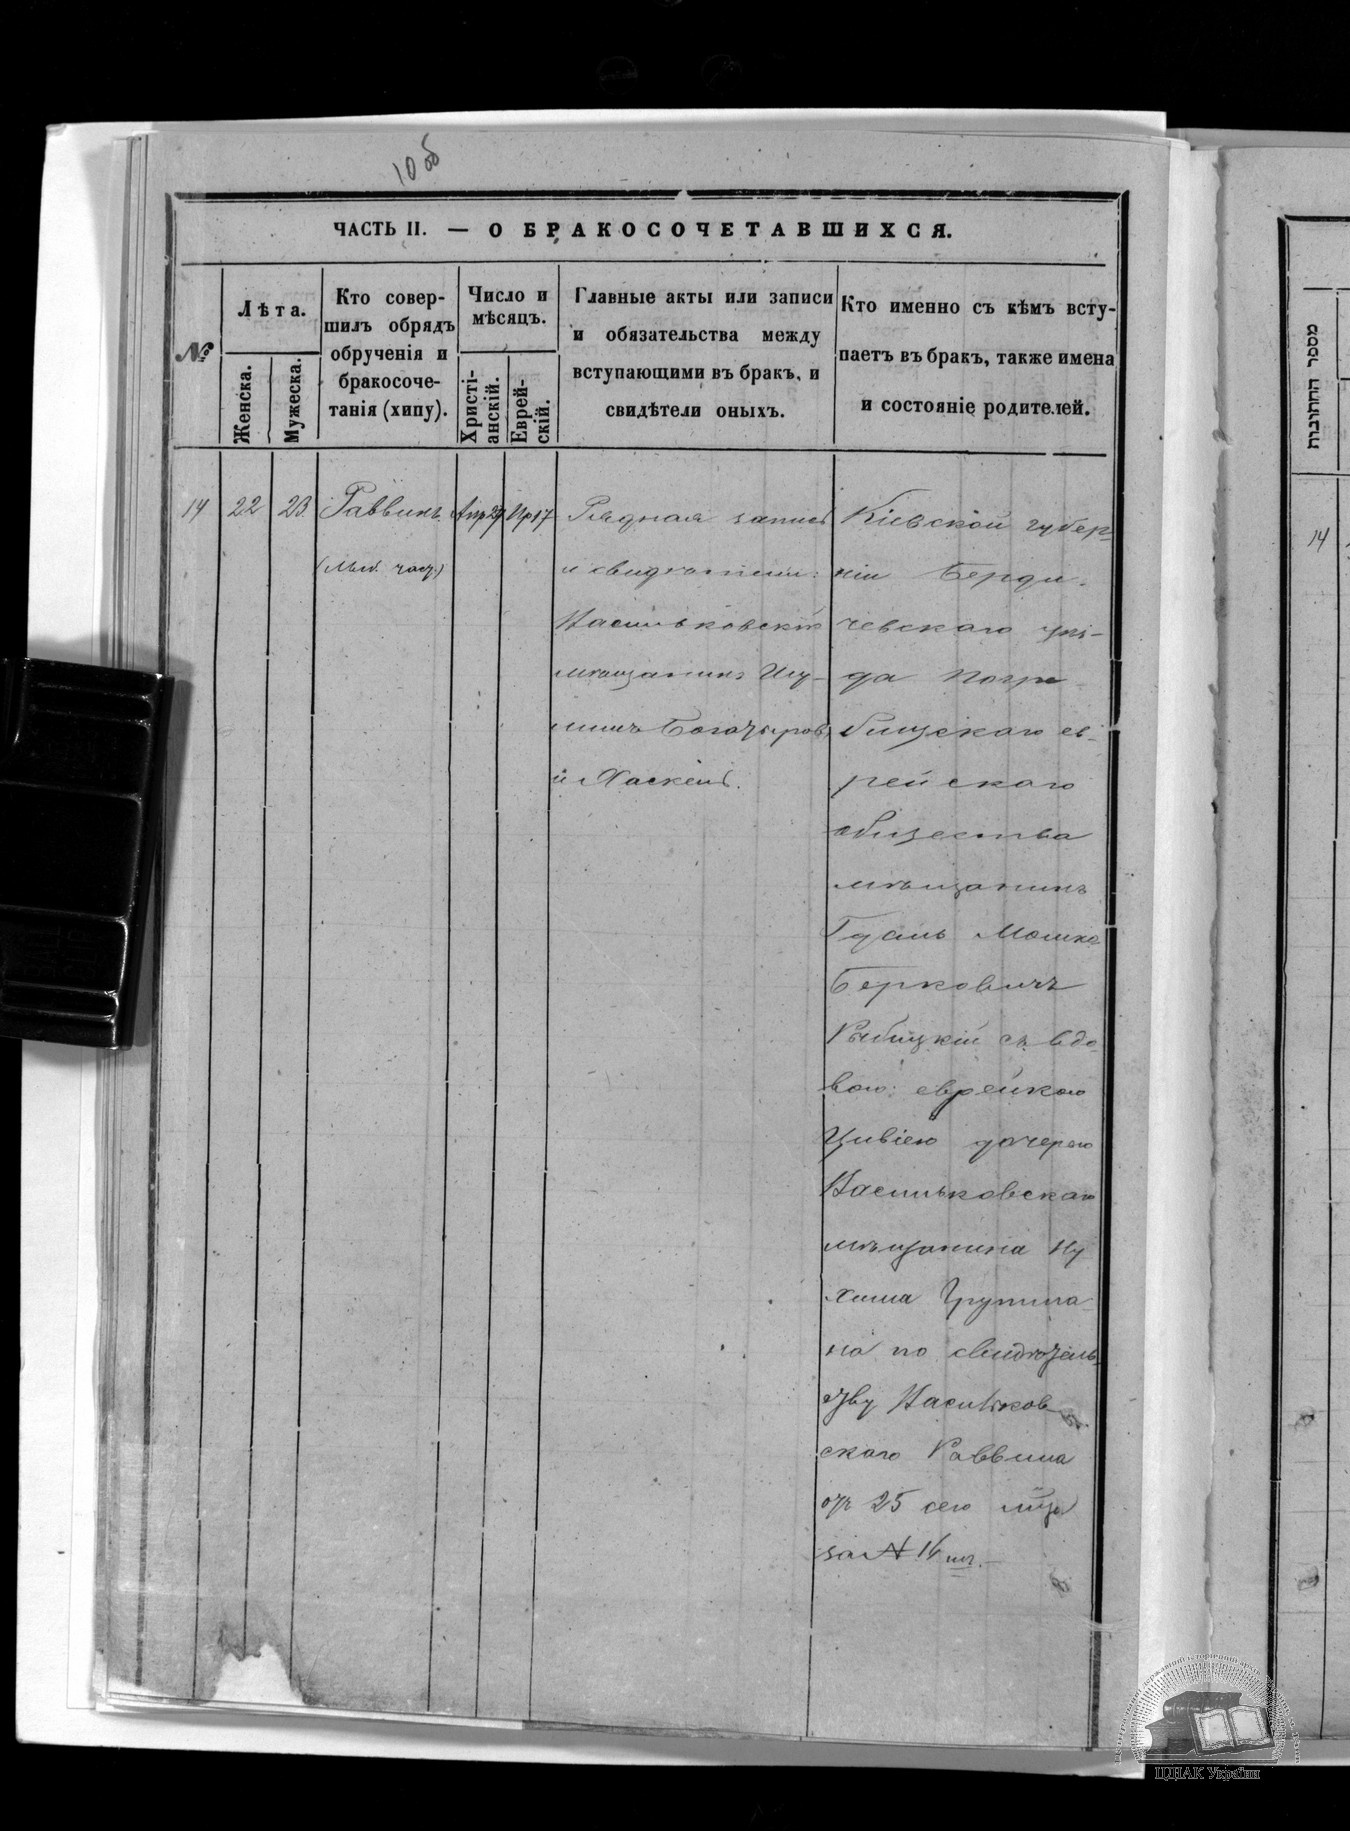 10 об
ЧАСТЬ II. — О БРАКОСОЧЕТАВШИХСЯ.
№
Лѣта.
Женска.
Мужеска.
Кто совер-
шилъ обрядъ
обрученія и
бракосоче-
танія (хипу).
Число и
мѣсяцъ.
Христі-
анскій.
Еврей-
скій.
Главные акты или записи
и обязательства между
вступающими въ бракъ, и
свидѣтели оныхъ.
Кто именно съ кѣмъ всту-
паетъ въ бракъ, также имена
и состояніе родителей.
14
22
23
Раввинъ
Апр 29
Ир 17
Рядная запись
и свидѣтели:
Васильковскій
мѣщанинъ
Богатыровъ
и Хаскель.
Кіевской губер-
ніи Берди-
чевскаго уѣз-
да Погре
бищскаго ев-
рейскаго
общества
мѣщанинъ
Гдаль Мошко
Берковичъ
Рыбицкій съ вдо
вою: еврейкою
Цивіею дочерею
Васильковскаго
мѣщанина Ну
хима
на по свидѣтель-
ству Васильков
скаго Раввина
отъ 25 сего м-ца
за № 14
מספר החתונות
14
ЦДІАК України